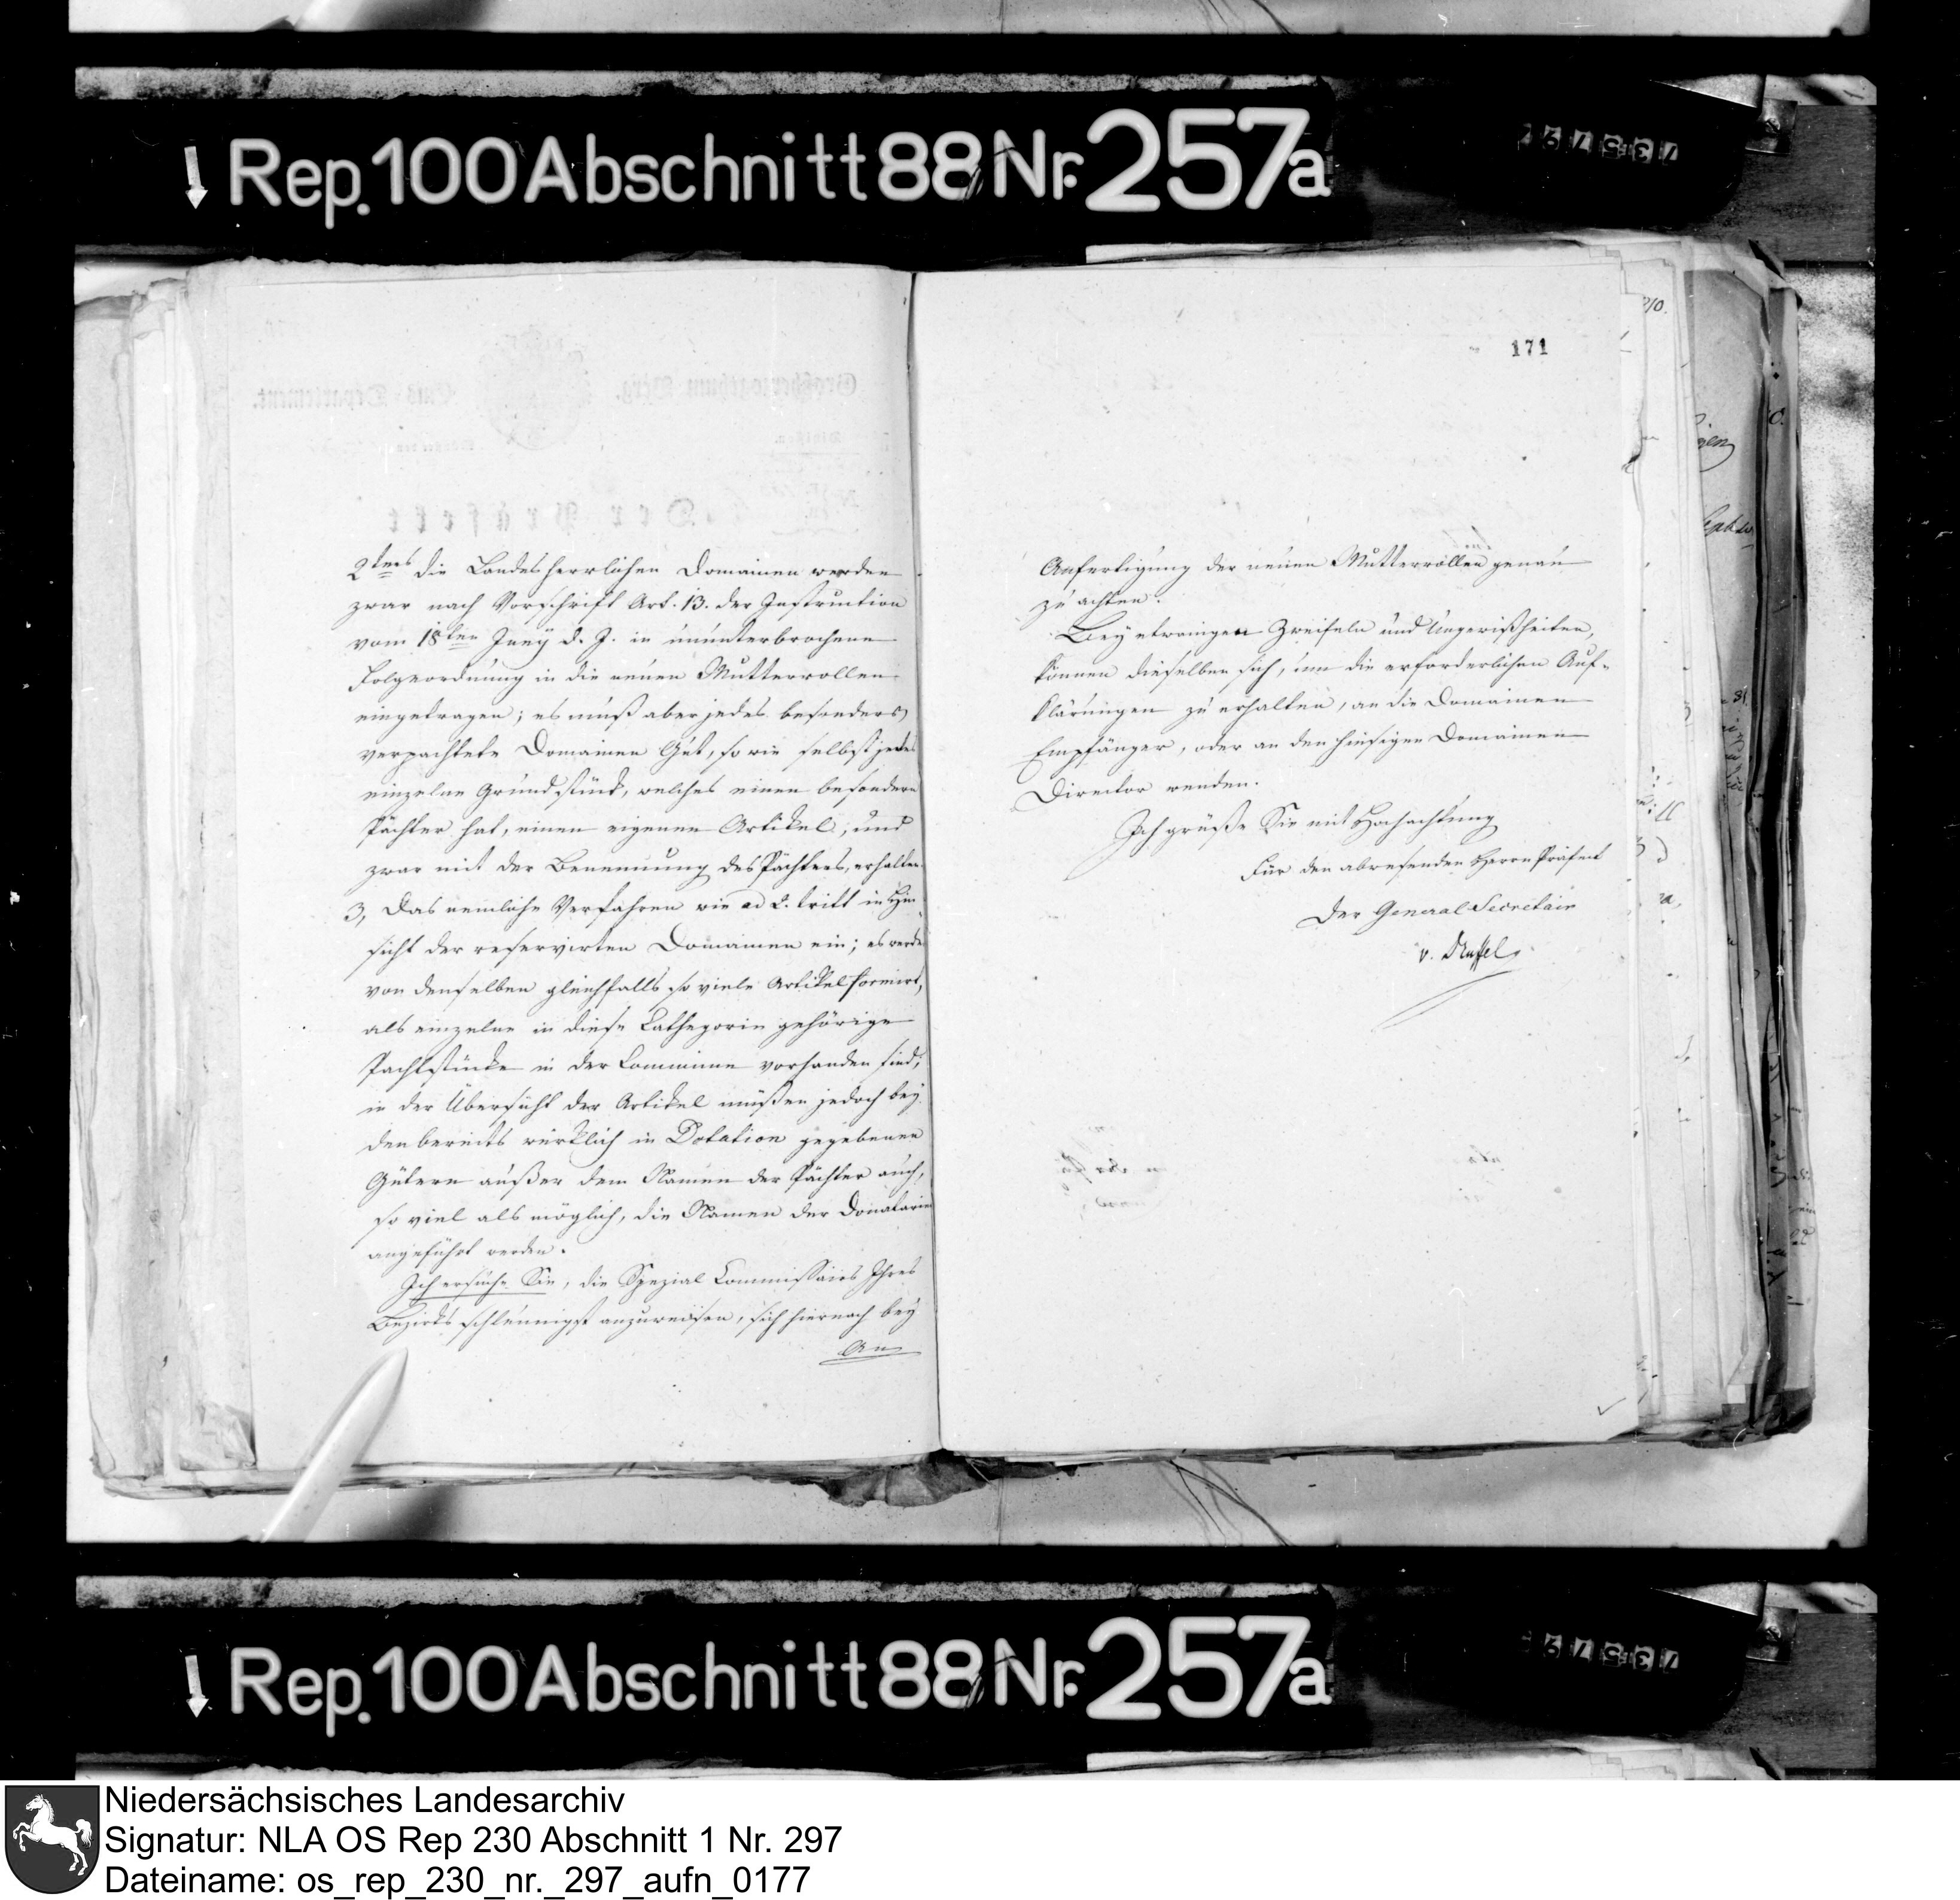 Rep. 100 Abschnitt 88 Nr. 257a
171
2tens die Landesherrlichen Domainen werden
zwar nach Vorschrift Art. 13. der Instruction
vom 18ten Juny d. J. in ununterbrochene
Folgeordnung in die neuen Mutterrollen
eingetragen; es muß aber jedes besonders
verpachtete Domainen Gut, so wie selbst jedes
einzelne Grundstück, welches einen besondern
Pächter hat, einen eigenen Artikel, und
zwar mit der Benennung des Pächters, erhalten.
3, Das nemliche Verfahren wie ad 2. tritt in Hin-
sicht der reservirten Domainen ein; es werden
von denselben gleichfalls so viele Artikel formirt,
als einzelne in diese Cathegorie gehörige
Pachtstücke in der Commune vorhanden sind;
in der Übersicht der Artikel müßen jedoch bey
den bereits würklich in Dotation gegebenen
Gütern außer dem Namen der Pächter auch,
so viel als möglich, die Namen der Donatarien
angeführt werden.
Ich ersuche Sie, die Spezial Commissairs Ihres
Bezirks schleunigst anzuweisen, sich hiernach bey
An
Anfertigung der neuen Mutterrollen genau
zu achten.
Bey etwaigen Zweifeln und Ungewißheiten,
können dieselben sich, um die erforderlichen Auf-
klärungen zu erhalten, an die Domainen
Empfänger, oder an den hiesigen Domainen
Director wenden.
Ich grüße Sie mit Hochachtung
Für den abwesenden Herrn Präfect
Der General Secretair
v. Druffel
Rep. 100 Abschnitt 88 Nr. 257a
Niedersächsisches Landesarchiv
Signatur: NLA OS Rep 230 Abschnitt 1 Nr. 297
Dateiname: os_rep_230_nr._297_aufn_0177